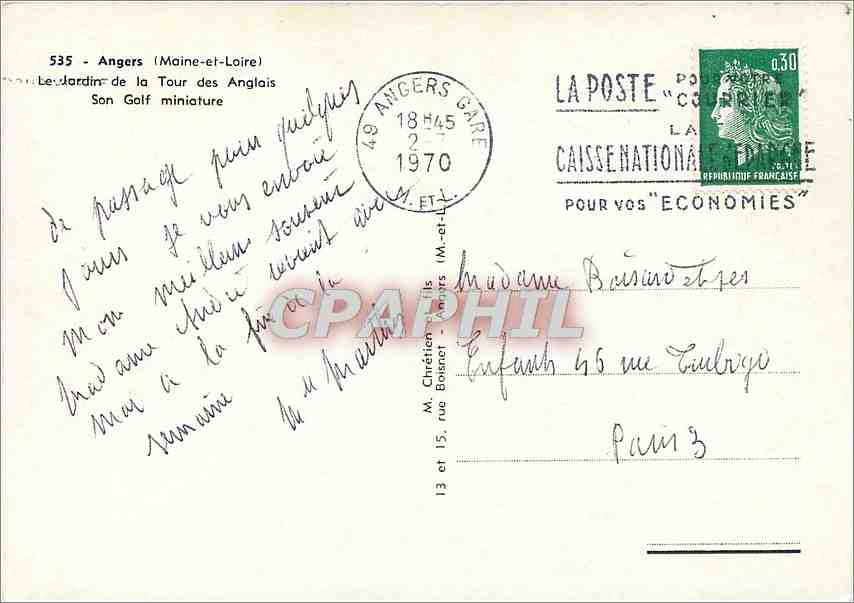 535 - Angers (Maine-et-Loire)
Le Jardin de la Tour des Anglais
Son Golf miniature
49 ANGERS GARE
18H45
2-7
1970
M. ET-L.
LA POSTE POUR VOTRE
"COURRIER"
LA
CAISSE NATIONALE D'EPARGNE
POUR VOS "ECONOMIES"
0,30
POSTES
REPUBLIQUE FRANÇAISE
de passage pour quelques
jours je vous envoie
mon meilleur souvenir
Madame André revient avec
moi à la fin de la
semaine
Mll Martin
M. Chrétien et fils
13 et 15, rue Boisnet - Angers (M.-et-L.)
Madame Boisard et ses
Enfants 46 rue Turbigo
Paris 3
CPAPHIL